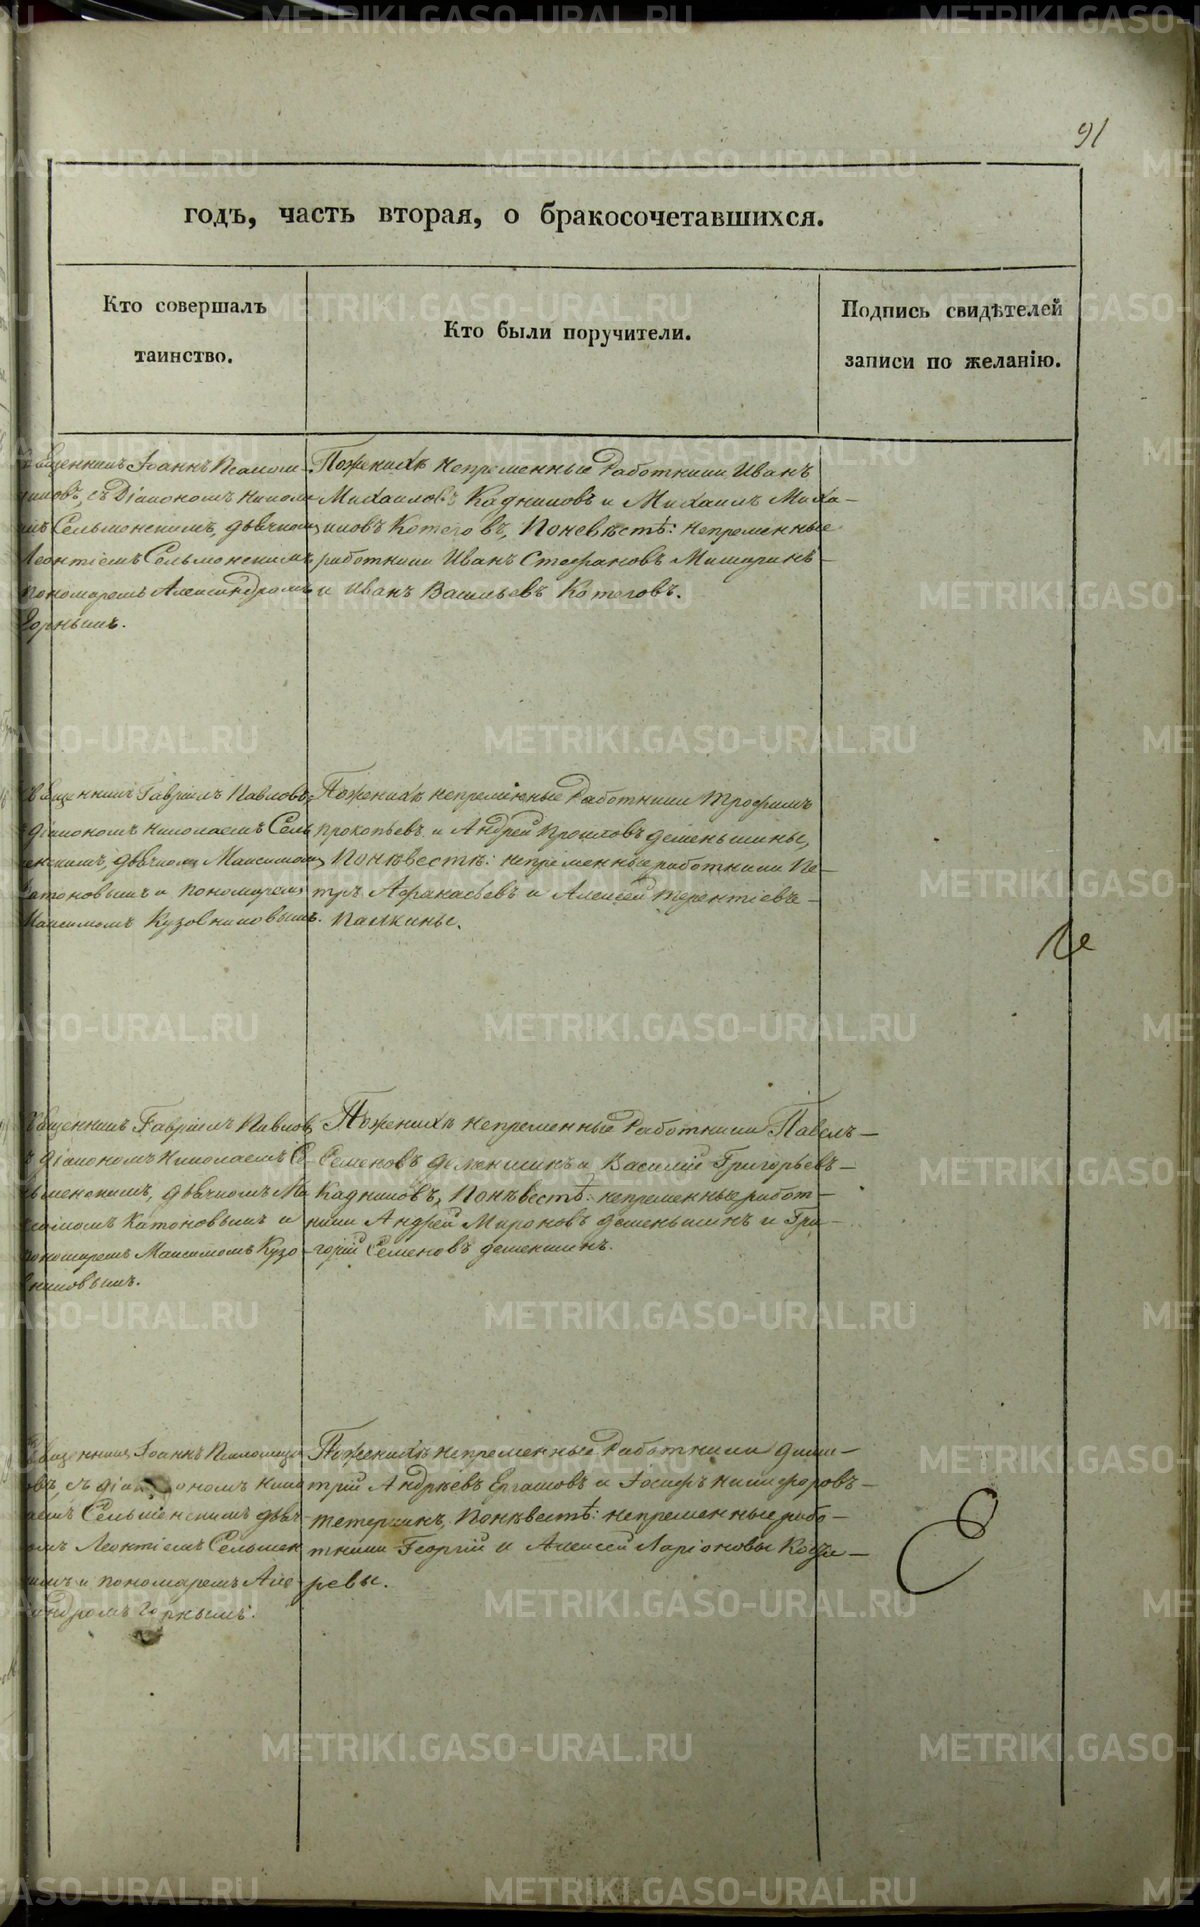 91
годъ, часть вторая, о бракосочетавшихся.
Кто совершалъ
таинство.
Кто были поручители.
Подпись свидѣтелей
записи по желанію.
Іоаннъ
съ Діакономъ
Сельменскимъ, дьячкомъ
Леонтіемъ Сельменскимъ
пономаремъ Александромъ
Горнымъ.
По женихѣ непременные Работники Иванъ
Михаиловъ Кадниковъ и Михаилъ Миха-
иловъ Котеговъ, По невѣстѣ: непременные
работники Иванъ Стефановъ Мишаринъ
и Иванъ Васильевъ Котеговъ.
Гавріилъ Павловъ
діакономъ Николаемъ Сель
дьячкомъ Максимомъ
Катоновымъ и пономаремъ
Максимомъ Кузовниковымъ.
По женихѣ непременные Работники Трофимъ
Прокопьевъ и Андрей деменьшины,
По невестѣ: непременные работники Пе-
тръ Афанасьевъ и Алексей Терентіевъ
Палкины.
Священникъ Гавріилъ Павлов
діакономъ Николаемъ Се
дьячкомъ Ма
Катоновымъ и
пономаремъ Максимомъ Кузо-
вниковымъ.
По женихѣ непременные Работники Павелъ
Семеновъ деменшинъ и Василій Григорьевъ
Кадниковъ, По невестѣ: непременные работ-
ники Андрей Мироновъ деменьшинъ и Гри-
горій Семеновъ деменшинъ.
Іоаннъ
съ діакономъ Нико
Сельменскимъ дьяч-
Леонтіемъ Сельмен
и пономаремъ Але-
Горнымъ.
По женихѣ непременные Работники дими-
трій Андрѣевъ Ергашовъ и Іосифъ Никифоровъ
Тетеринъ, По невестѣ: непременные рабо-
тники Георгій и Алексей Ларіоновы
ревы.
METRIKI.GASO-URAL.RU